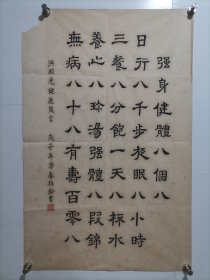 强身健體八個八
日行八千步夜眠八小時
三餐八分飽一天八杯水
養心八珍湯强體八段錦
無病八十八有壽百零八
洪昭光健康箴言 戊子年季春